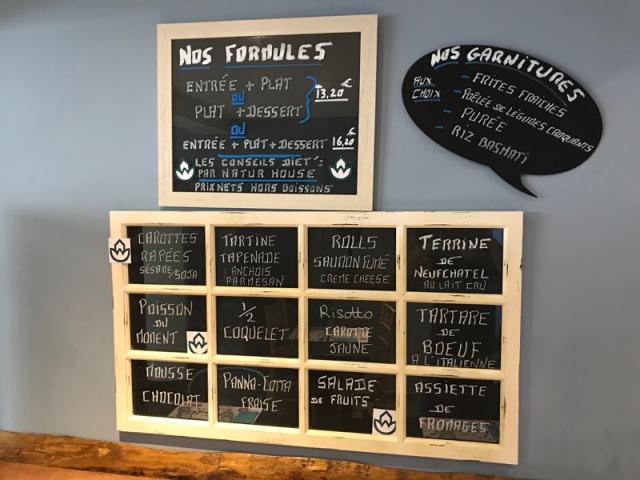 NOS FORMULES
ENTRÉE + PLAT
OU
PLAT + DESSERT
13,20 €
OU
ENTRÉE + PLAT + DESSERT 16,20 €
LES CONSEILS DIÉT':
PAR NATUR HOUSE
PRIX NETS HORS BOISSONS
NOS GARNITURES
AUX CHOIX
- FRITES FRAICHES
- POÊLÉE DE LÉGUMES CROQUANTS
- PURÉE
- RIZ BASMATI
CAROTTES
RAPÉES
SÉSAME/SOJA
TARTINE
TAPENADE
ANCHOIS
PARMESAN
ROLLS
SAUMON FUMÉ
CREME CHEESE
TERRINE
DE
NEUFCHATEL
AU LAIT CRU
POISSON
DU
MOMENT
1/2
COQUELET
Risotto
CAROTTE
JAUNE
TARTARE
DE
BOEUF
A L'ITALIENNE
MOUSSE
CHOCOLAT
PANNA-COTTA
FRAISE
SALADE
DE FRUITS
ASSIETTE
DE
FROMAGES